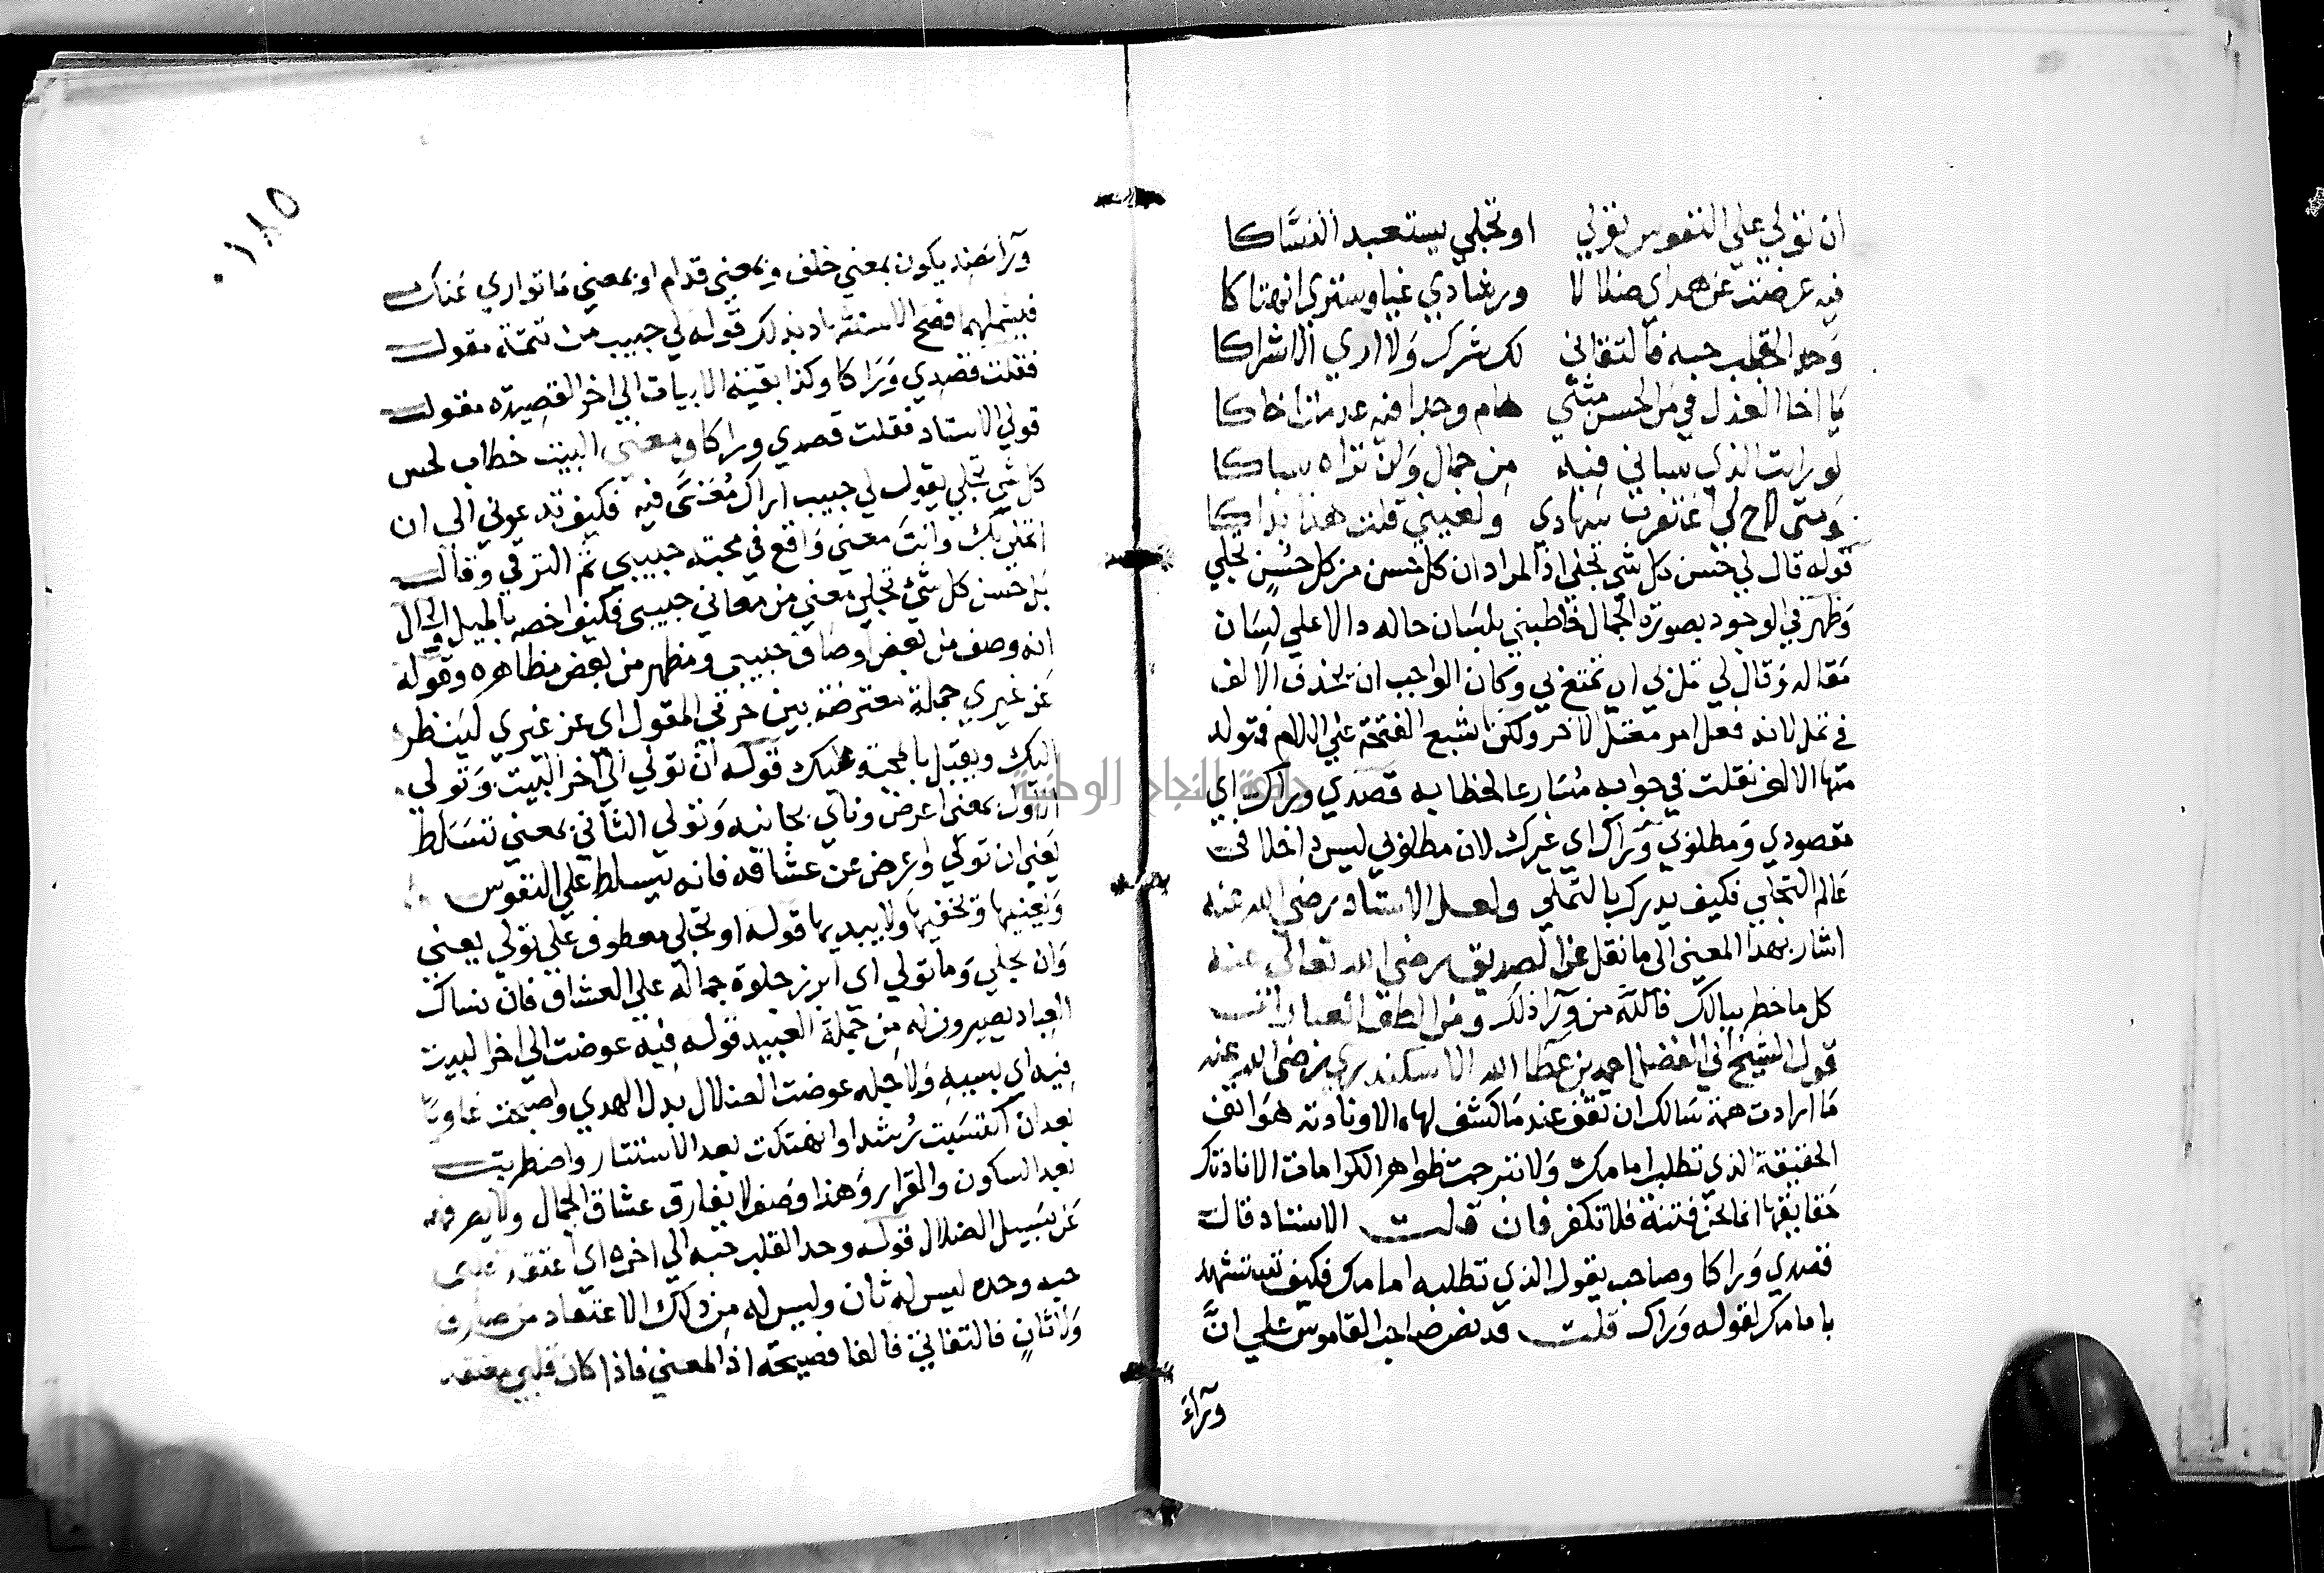 ان تولي علي النفوس تولي او تجلي يستعبد النساكا
فيه عوضت عن هداي ضلالا ورشادي غيا وستري انهتاكا
وحد القلب حبه فالتفاتي لك شرك ولا اري الاشراكا
يا اخا العذل في من الحسن مثلي هام وجدا فيه عدمت اخاكا
لو رايت الذي سباني فيه من جمال ولن تراه سباكا
ومتي لاح لي اغتفرت سهادي ولعيني قلت هذا بذاكا
قوله قال لي حسن كل شي تجلي اذ المراد ان كل حسن من كل حسن تجلي
وظهر في الوجود بصورة الجمال خاطبني بلسان حاله دالا علي لسان
مقاله وقال لي تمل بي اي تمتع بي وكان الواجب ان يحذف الالف
في تمل لانه فعل امر معتل الاخر ولكن اشبع الفتحة علي اللام فتولد
منها الالف فقلت في جوابه مسارعا لخطابه قصدي وراك اي
مقصودي ومطلوبي وراك اي غيرك لان مطلوبي ليس داخلا في
عالم التجلي فكيف يدرك بالتملي ولعل الاستاد رضي الله عنه
اشار بهذا المعني الي ما نقل عن الصديق رضي الله تعالي عنه
كل ما خطر ببالك فالله من ورآ ذلك ومن الطف العبارات
قول الشيخ ابي الفضل احمد بن عطا الله الاسكندري رضي الله عنه
ما ارادت همة سالك ان تقف عند ما كشف لها الا ونادته هواتف
الحقيقة الذي تطلب امامك ولا تبرجت ظواهر الكرامات الا نادتك
حقايقها انما نحن فتنة فلا تكفر فان قلت الاستاد قال
قصدي وراكا وصاحب يقول الذي تطلبه امامك فكيف تستشهد
بامامك لقوله وراك قلت قد نص صاحب القاموس علي ان
ورآء
١٨٥
ورآ ضد يكون بمعني خلف وبمعني قدام او بمعني ما تواري عنك
فيشملهما فصح الاستشهاد بذلك قوله لي حبيب من تتمة مقول
فقلت قصدي وراكا وكذا بقية الابيات الي اخر القصيدة مقول
قولي الاستاد فقلت قصدي وراكا ومعني البيت خطاب لحسن
كل شي تجلي يقول لي حبيب اراك معني فيه فكيف تدعوني الي ان
اتملي بك وانت معني واقع في محبته حبيبي ثم الترقي وقال
بل حسن كل شئ تجلي معني من معاني حبيبي فكيف اخصه بالميل والحال
انه وصف من بعض اوصاف حبيبي ومظهر من بعض مظاهره وقوله
عن غيري جملة معترضة بين جزئي المقول اي عز غيري لينظر
اليك ويقبل بالمحبة عليك قوله ان تولي الي اخر البيت وتولي
الاول بمعني اعرض وناي بجانبه وتولي الثاني بمعني تسلط
يعني ان تولي واعرض عن عشاقه فانه يتسلط علي النفوس
ويفنيها ويخفيها ولا يبديها قوله او تجلي معطوف علي تولي يعني
وان تجلي وما تولي اي ابرز جلوة جماله علي العشاق فان نساك
العباد يصيرون له من جملة العبيد قوله فيه عوضت الي اخر البيت
فيه اي بسببه ولاجله عوضت الضلال بدل الهدي واصبحت غاويا
بعد ان اكتسبت رشدا وانهتكت بعد الاستتار واضطربت
بعد السكون والقرار وهذا وصف لا يفارق عشاق الجمال ولا يصرفهم
عن سبيل الضلال قوله وحد القلب حبه الي اخره اي اعتقد قلبي
حبه وحده ليس له ثان وليس له من ذلك الاعتقاد من صارف
ولا ثان فالتفاتي فالفا فصيحة اذ المعني فاذا كان قلبي معتقد